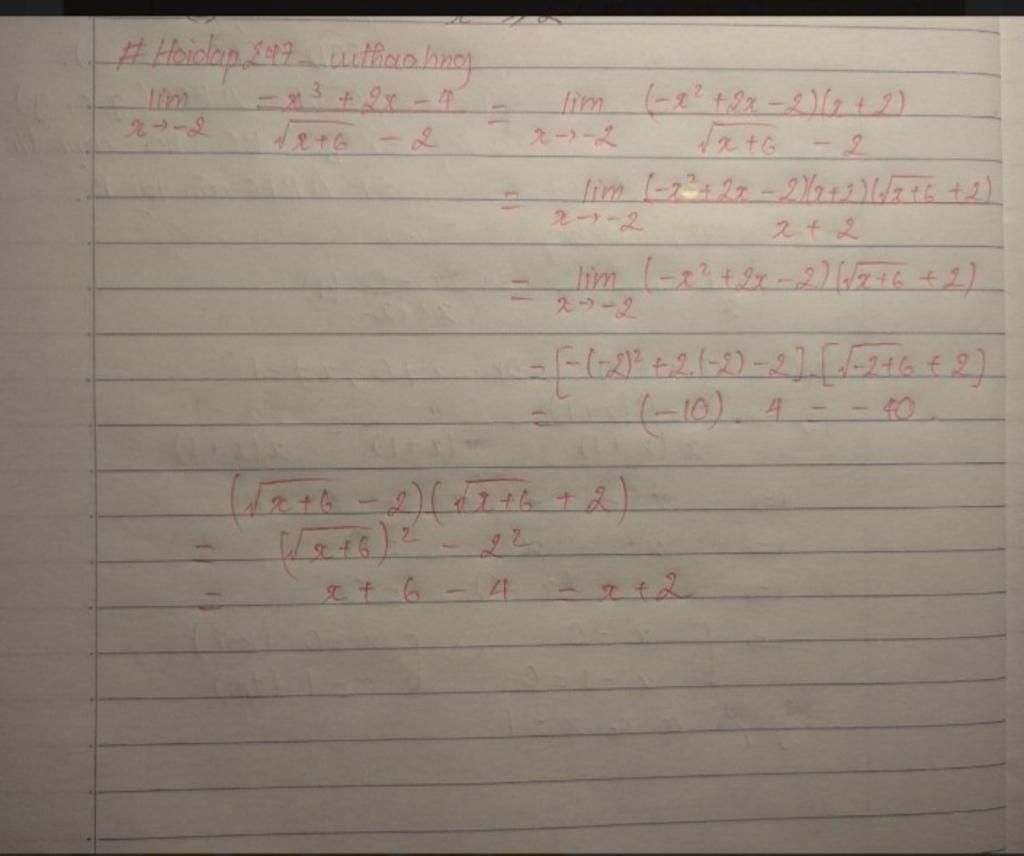 # Hoidap247_uithaohng
lim x→-2 (-x³ + 2x - 4)/(√(x+6) - 2) = lim x→-2 ((-x² + 2x - 2)(x + 2))/(√(x+6) - 2)
= lim x→-2 ((-x² + 2x - 2)(x+2)(√(x+6) + 2))/(x + 2)
= lim x→-2 (-x² + 2x - 2)(√(x+6) + 2)
= [-(-2)² + 2.(-2) - 2].[√(-2+6) + 2]
= (-10) . 4 = -40.
(√(x+6) - 2)(√(x+6) + 2)
= (√(x+6))² - 2²
= x + 6 - 4 = x + 2